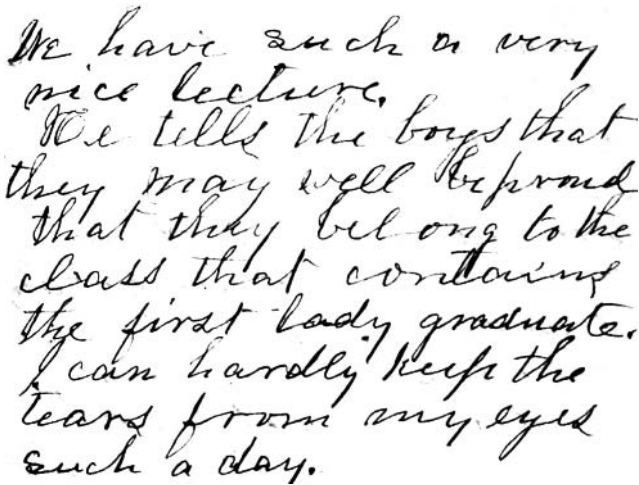 We have such a very
nice lecture.
He tells the boys that
they may well be proud
that they belong to the
class that contains
the first lady graduate.
I can hardly keep the
tears from my eyes
such a day.